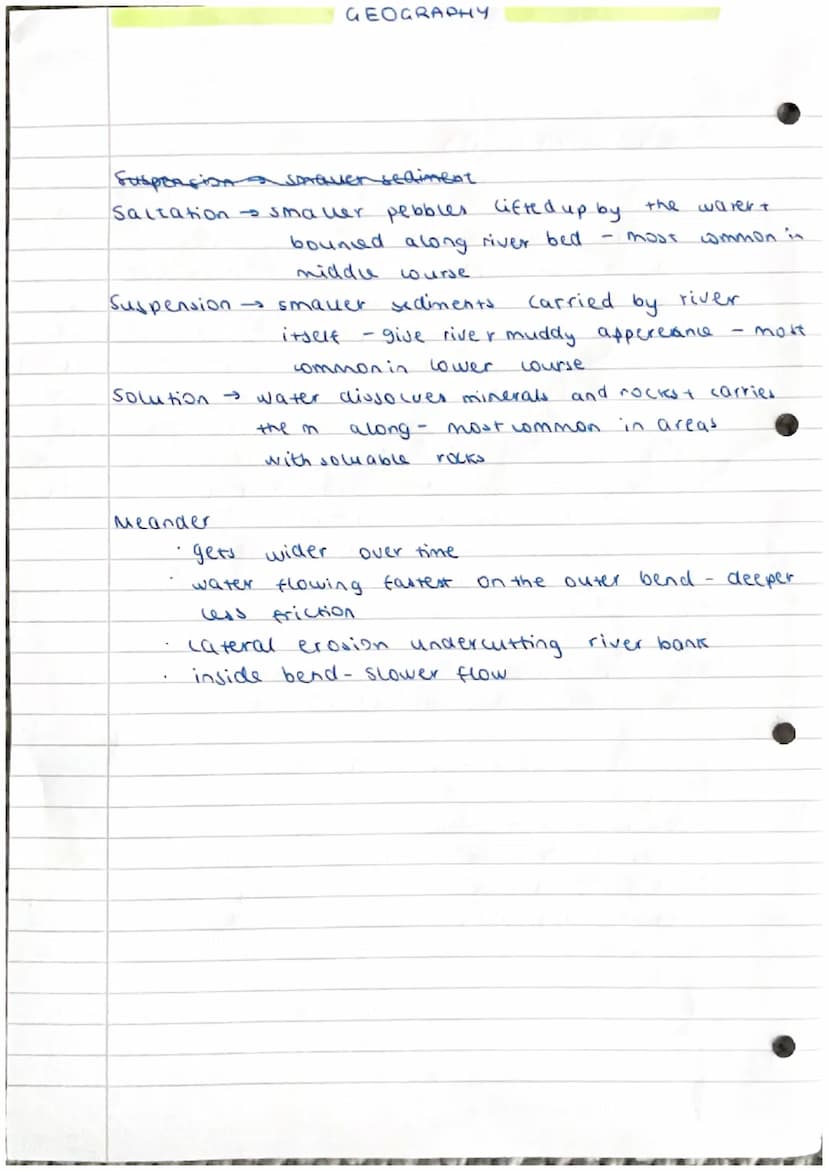 GEOGRAPHY
Suspension → smaller sediment
Saltation → smaller pebbles lifted up by the water +
bounced along river bed - most common in
middle course
Suspension → smaller sediments carried by river
itself - give river muddy appereance - most
common in lower course
Solution → water dissolves minerals and rocks + carries
them along - most common in areas
with soluable rocks
Meander
· gets wider over time
· water flowing fastest on the outer bend - deeper
less friction
· lateral erosion undercutting river bank
· inside bend - slower flow